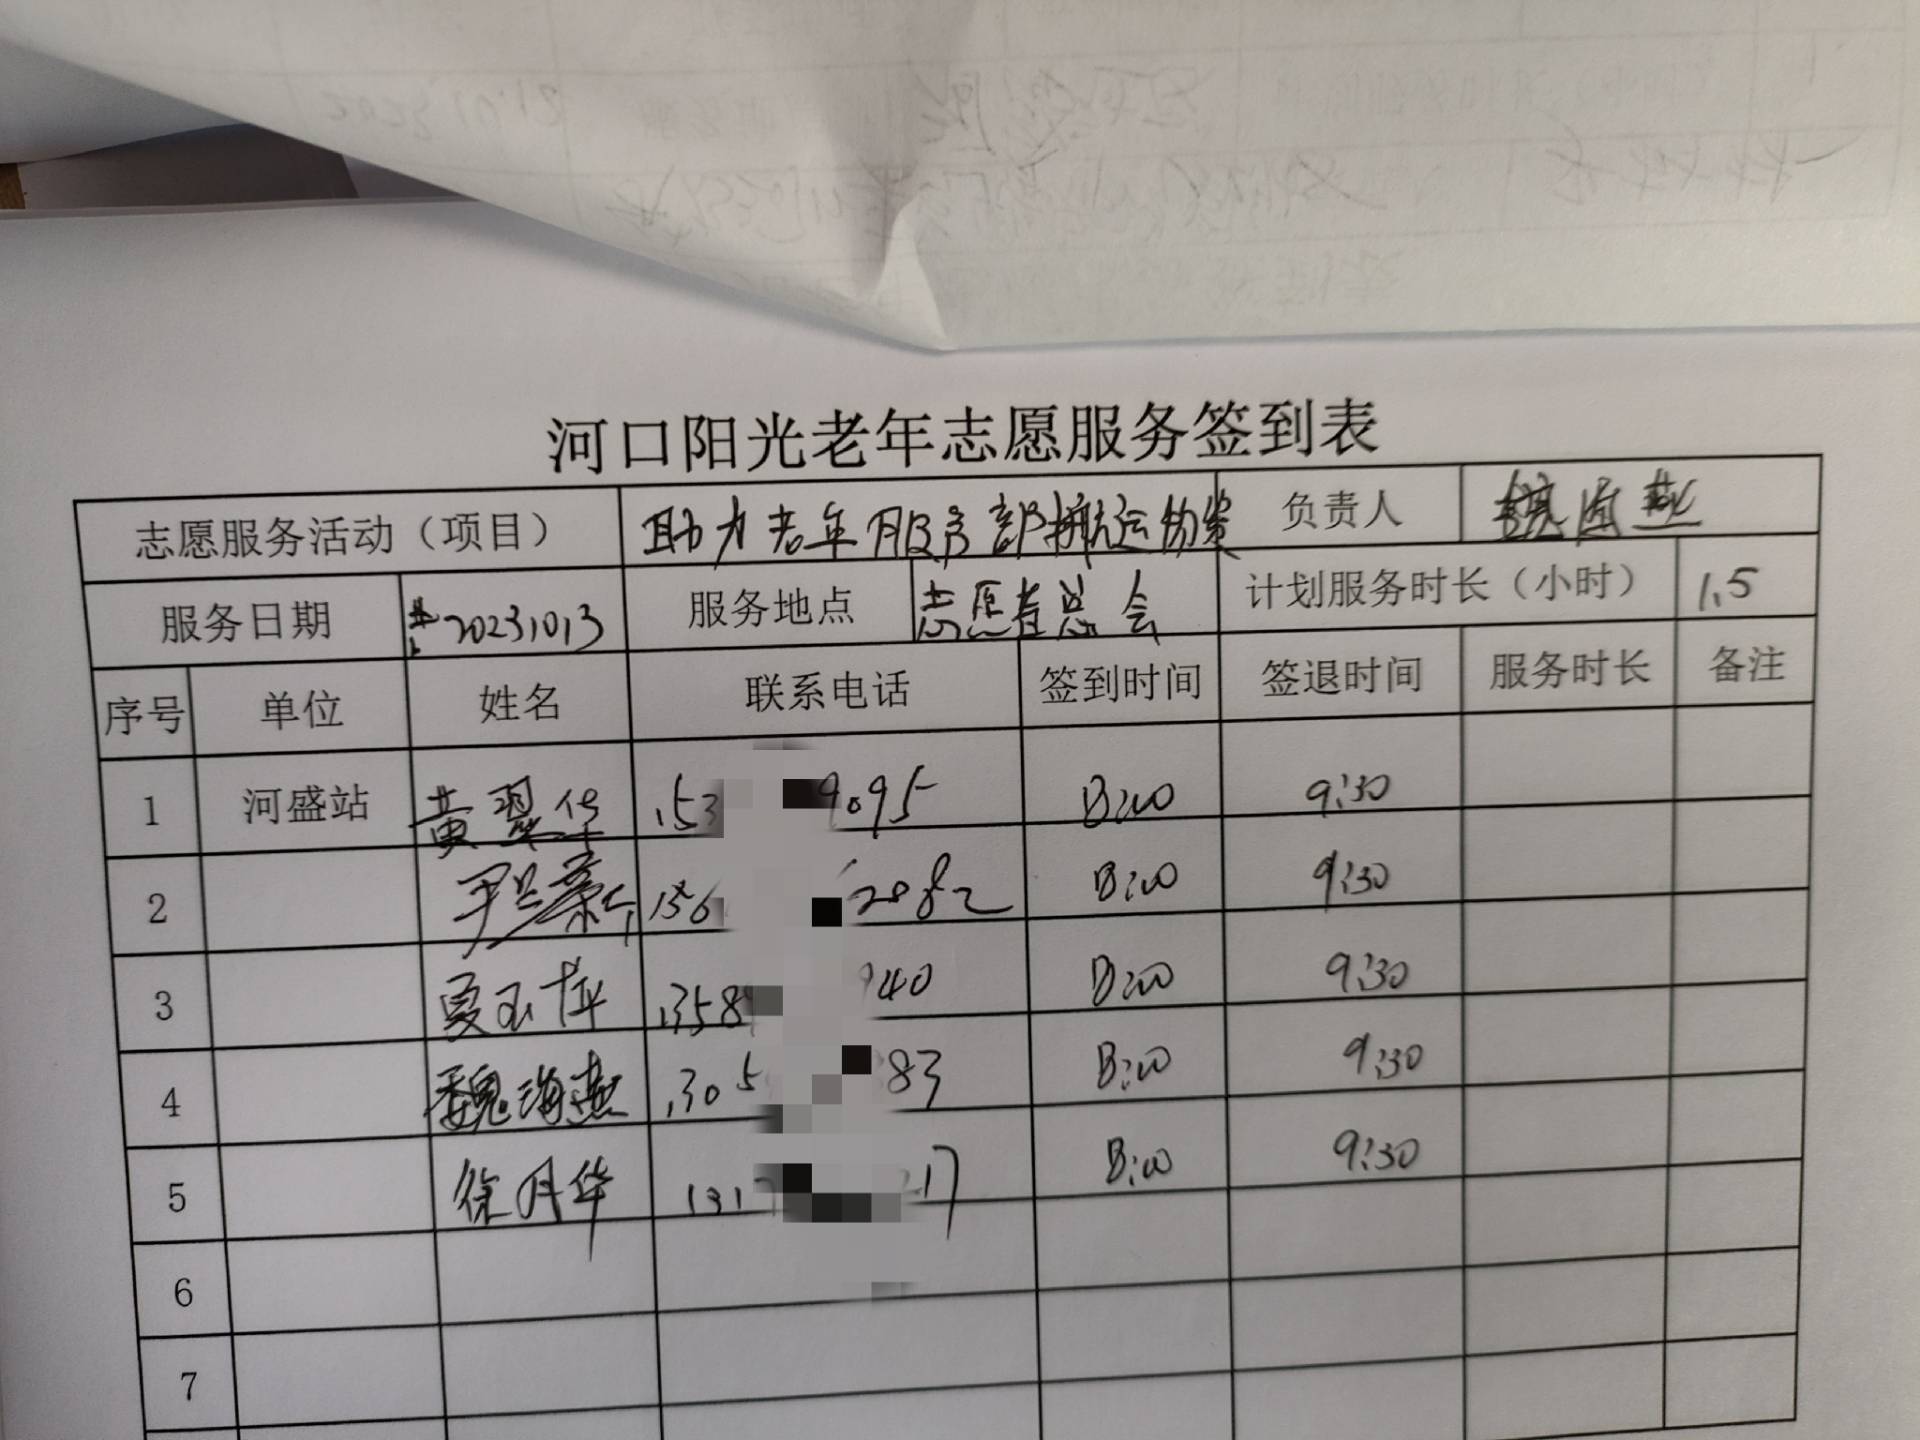 河口阳光老年志愿服务签到表
志愿服务活动（项目） 助力老年服务部搬运物资 负责人 魏海燕
服务日期 20231013 服务地点 志愿者总会 计划服务时长（小时） 1.5
序号 单位 姓名 联系电话 签到时间 签退时间 服务时长 备注
1 河盛站 黄翠华 153 9095 8:00 9:30
2 156 2882 8:00 9:30
3 夏玉萍 1358 940 8:00 9:30
4 魏海燕 1305 83 8:00 9:30
5 徐月华 131 17 8:00 9:30
6
7